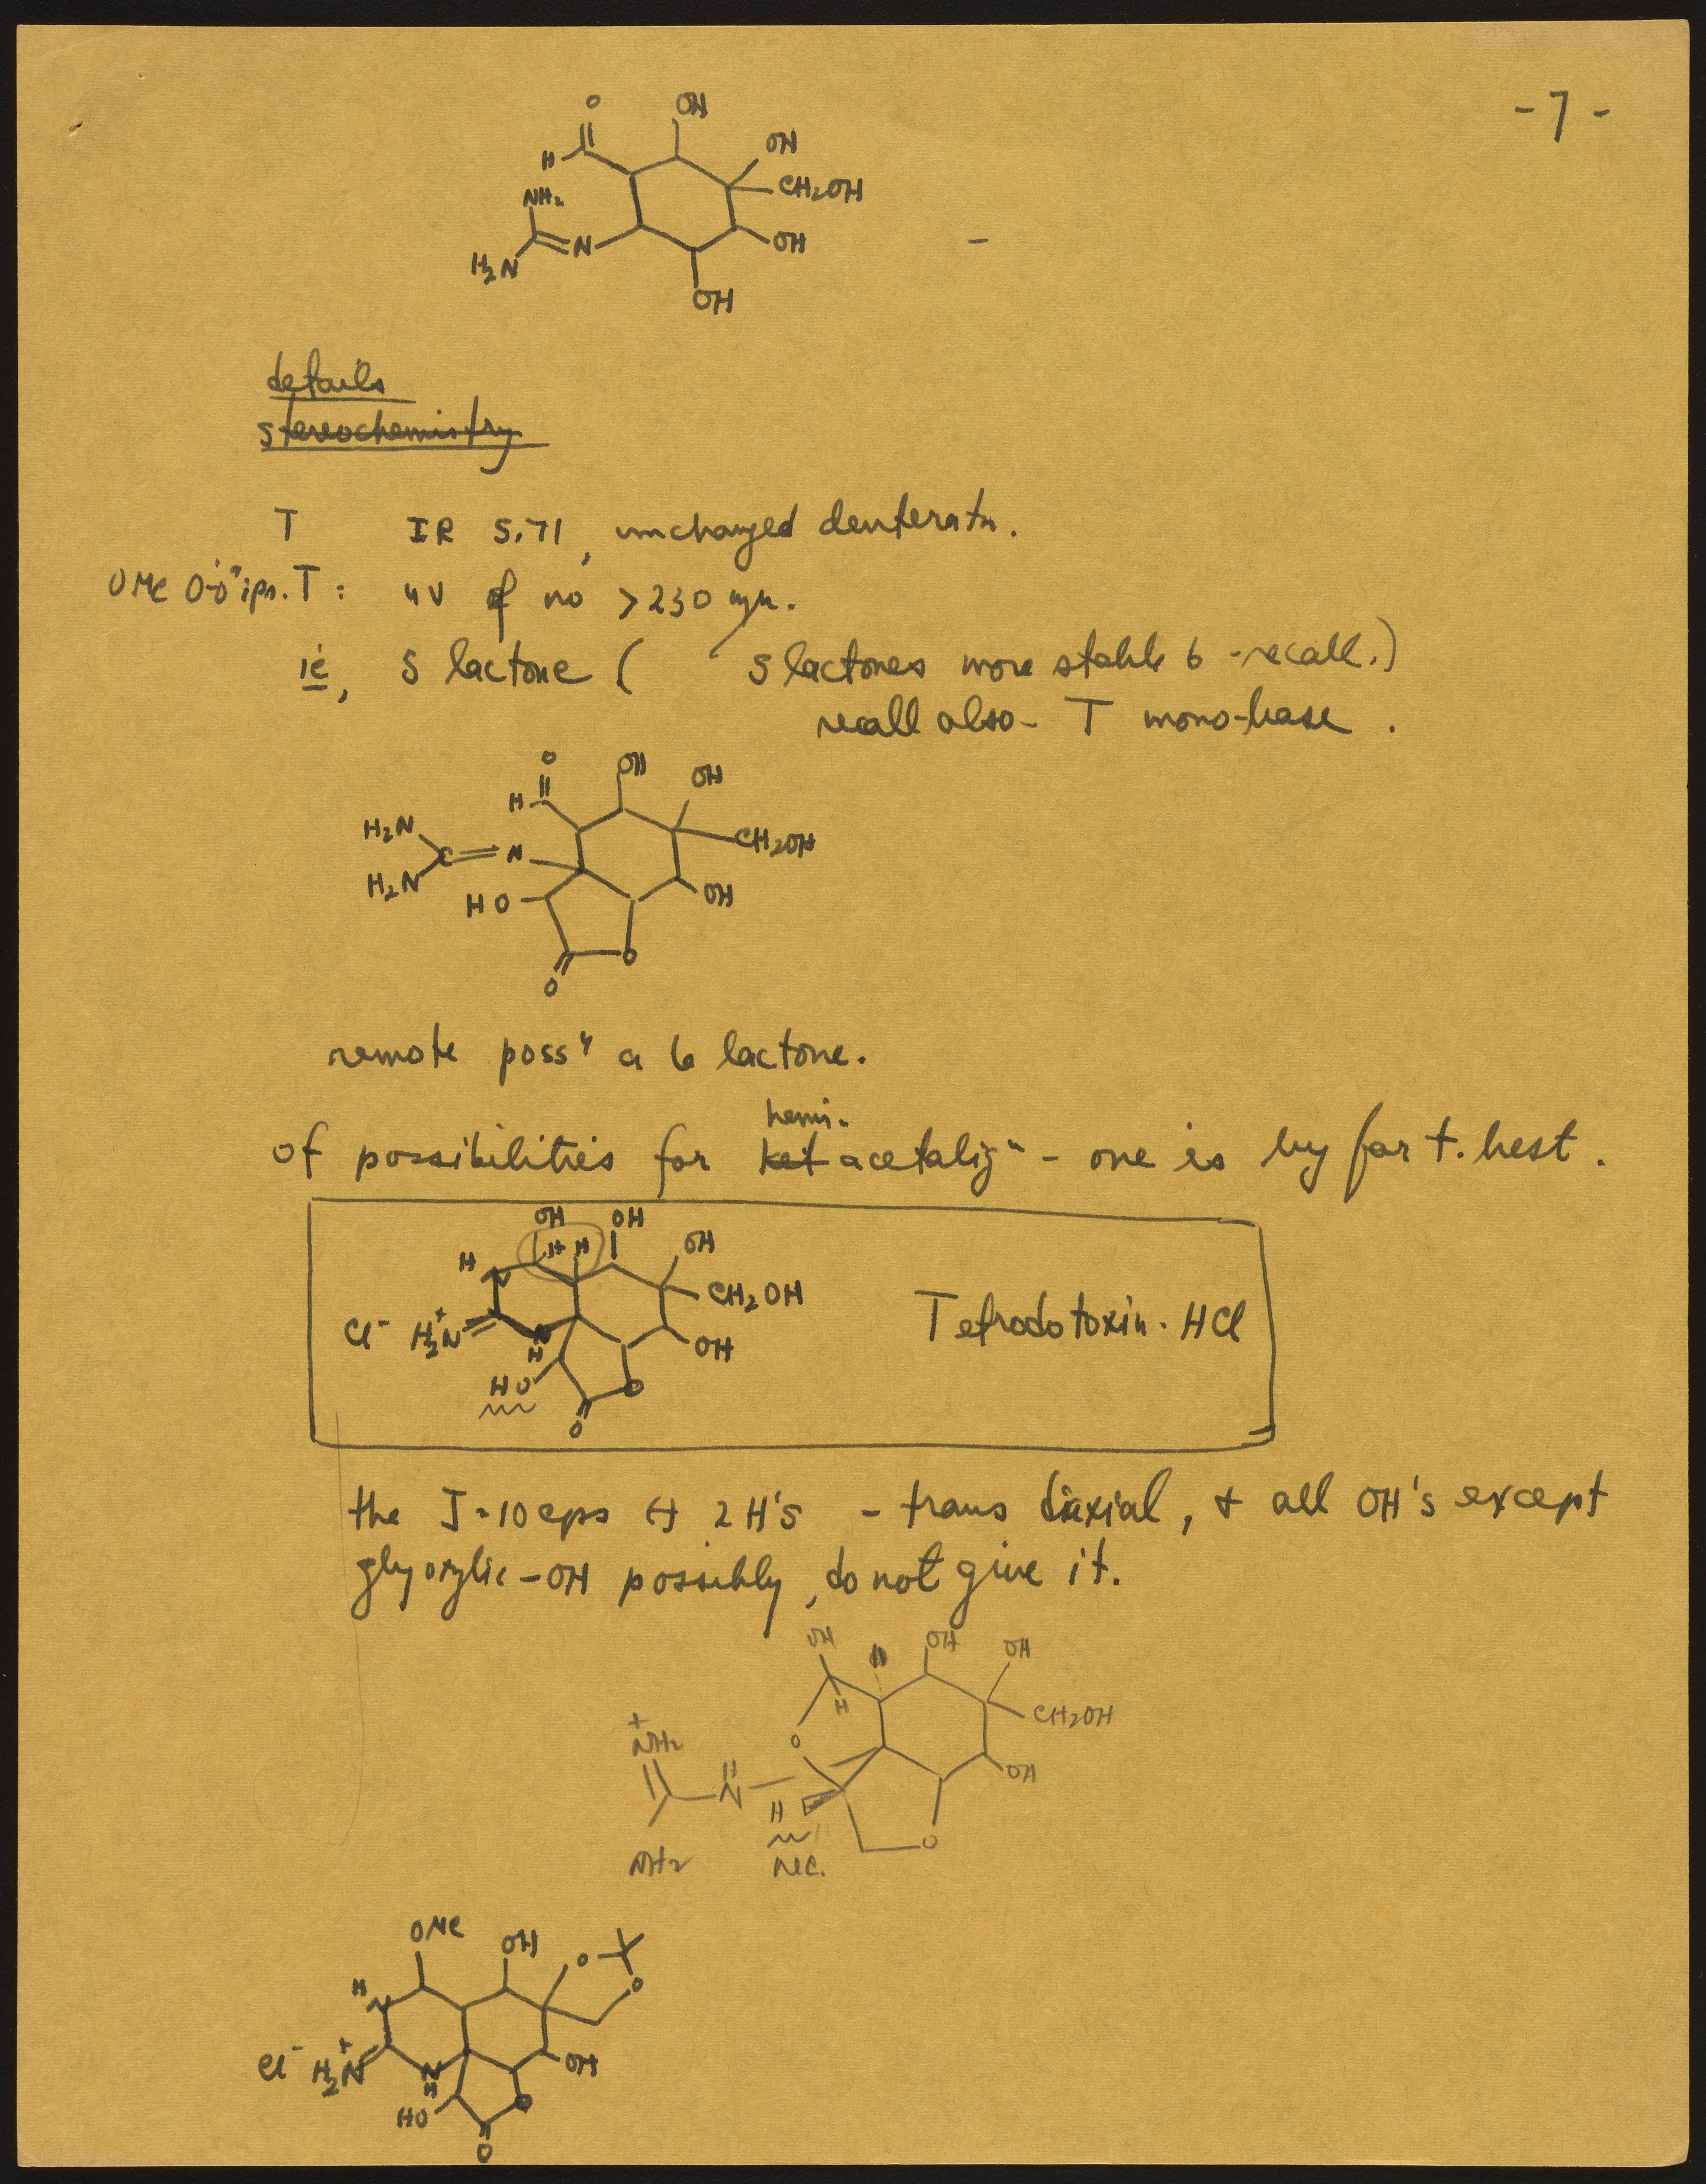 -7-
O
OH
H
OH
CH2OH
NH2
H2N
N
OH
OH
details
stereochemistry
T IR 5.71, unchanged deuteratn.
T: uv of no >230 mμ.
ie, 5 lactone ( 5 lactones more stable 6 - recall.)
recall also - T mono-base.
O
OH
OH
H
H2N
C
N
CH2OH
H2N
HO
OH
O
O
remote possy a 6 lactone.
hemi-
of possibilities for ket acetalizn - one is by far t. best.
OH
OH
H
H
H
OH
N
CH2OH
Cl- H2N+
N
H
OH
Tetrodotoxin · HCl
HO
O
O
the J=10 cps ↔ 2 H's - trans diaxial, + all OH's except
glyoxylic-OH possibly, do not give it.
OH
H
OH
OH
H
CH2OH
+
NH2
O
H
N
OH
H
O
NH2
nec.
OMe
OH
O
O
H
N
Cl- H2N+
N
H
OH
HO
O
O